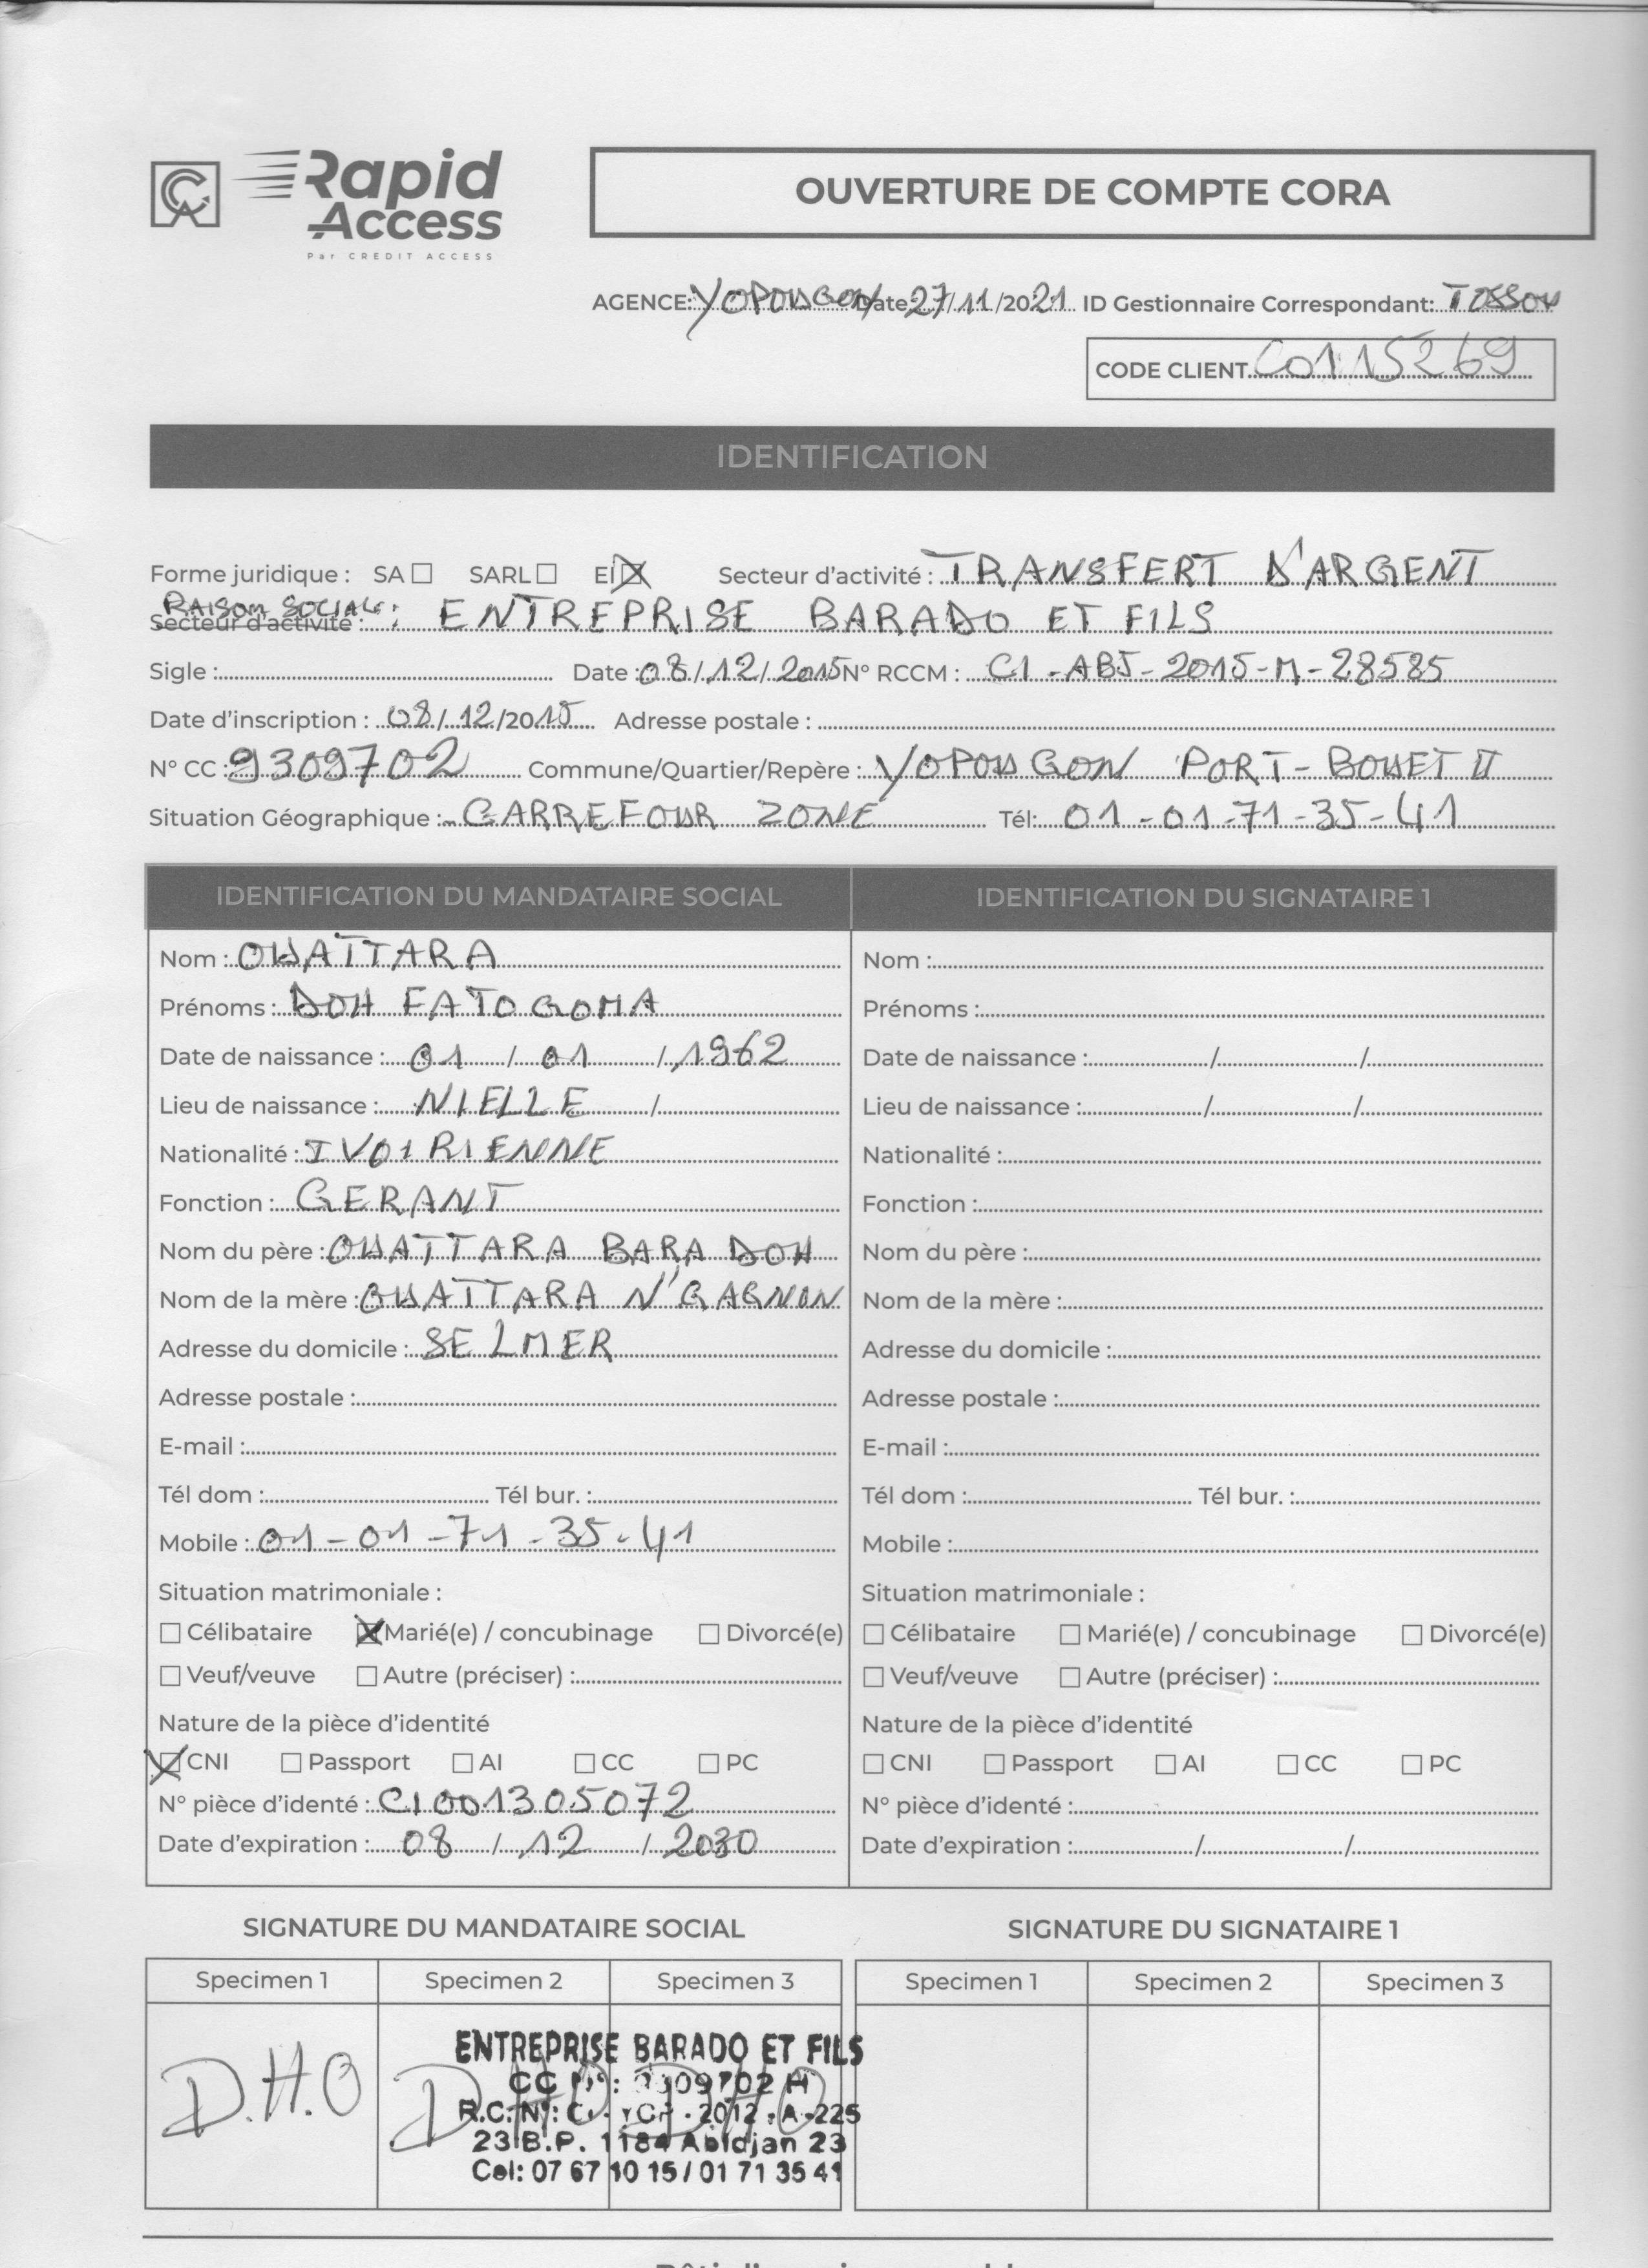 CA Rapid Access
Par CREDIT ACCESS
OUVERTURE DE COMPTE CORA
AGENCE: YOPOUGON Date 27/11/2021 ID Gestionnaire Correspondant: TOSSOU
CODE CLIENT C0115269
IDENTIFICATION
Forme juridique : SA ☐ SARL ☐ EI ☒ Secteur d'activité : TRANSFERT D'ARGENT
RAISON SOCIALE :
Secteur d'activité : ENTREPRISE BARADO ET FILS
Sigle : Date : 08/12/2015 N° RCCM : CI-ABJ-2015-M-28585
Date d'inscription : 08/12/2015 Adresse postale :
N° CC : 9309702 Commune/Quartier/Repère : YOPOUGON PORT-BOUET II
Situation Géographique : CARREFOUR ZONE Tél: 01-01-71-35-41
IDENTIFICATION DU MANDATAIRE SOCIAL
Nom : OUATTARA
Prénoms : DOH FATOGOMA
Date de naissance : 01 / 01 / 1962
Lieu de naissance : NIELLE /
Nationalité : IVOIRIENNE
Fonction : GERANT
Nom du père : OUATTARA BARA DOH
Nom de la mère : OUATTARA N'GAGNON
Adresse du domicile : SELMER
Adresse postale :
E-mail :
Tél dom : Tél bur. :
Mobile : 01-01-71-35-41
Situation matrimoniale :
☐ Célibataire ☒ Marié(e) / concubinage ☐ Divorcé(e)
☐ Veuf/veuve ☐ Autre (préciser) :
Nature de la pièce d'identité
☒ CNI ☐ Passport ☐ AI ☐ CC ☐ PC
N° pièce d'identé : CI001305072
Date d'expiration : 08 / 12 / 2030
IDENTIFICATION DU SIGNATAIRE 1
Nom :
Prénoms :
Date de naissance : / /
Lieu de naissance : / /
Nationalité :
Fonction :
Nom du père :
Nom de la mère :
Adresse du domicile :
Adresse postale :
E-mail :
Tél dom : Tél bur. :
Mobile :
Situation matrimoniale :
☐ Célibataire ☐ Marié(e) / concubinage ☐ Divorcé(e)
☐ Veuf/veuve ☐ Autre (préciser) :
Nature de la pièce d'identité
☐ CNI ☐ Passport ☐ AI ☐ CC ☐ PC
N° pièce d'identé :
Date d'expiration : / /
SIGNATURE DU MANDATAIRE SOCIAL
Specimen 1 Specimen 2 Specimen 3
D.H.O DHO DHO
ENTREPRISE BARADO ET FILS
CC N°: 09702 H
R.C. N°: 2012 - A - 225
23 B.P. 1184 Abidjan 23
Cel: 07 67 10 15 / 01 71 35 41
SIGNATURE DU SIGNATAIRE 1
Specimen 1 Specimen 2 Specimen 3